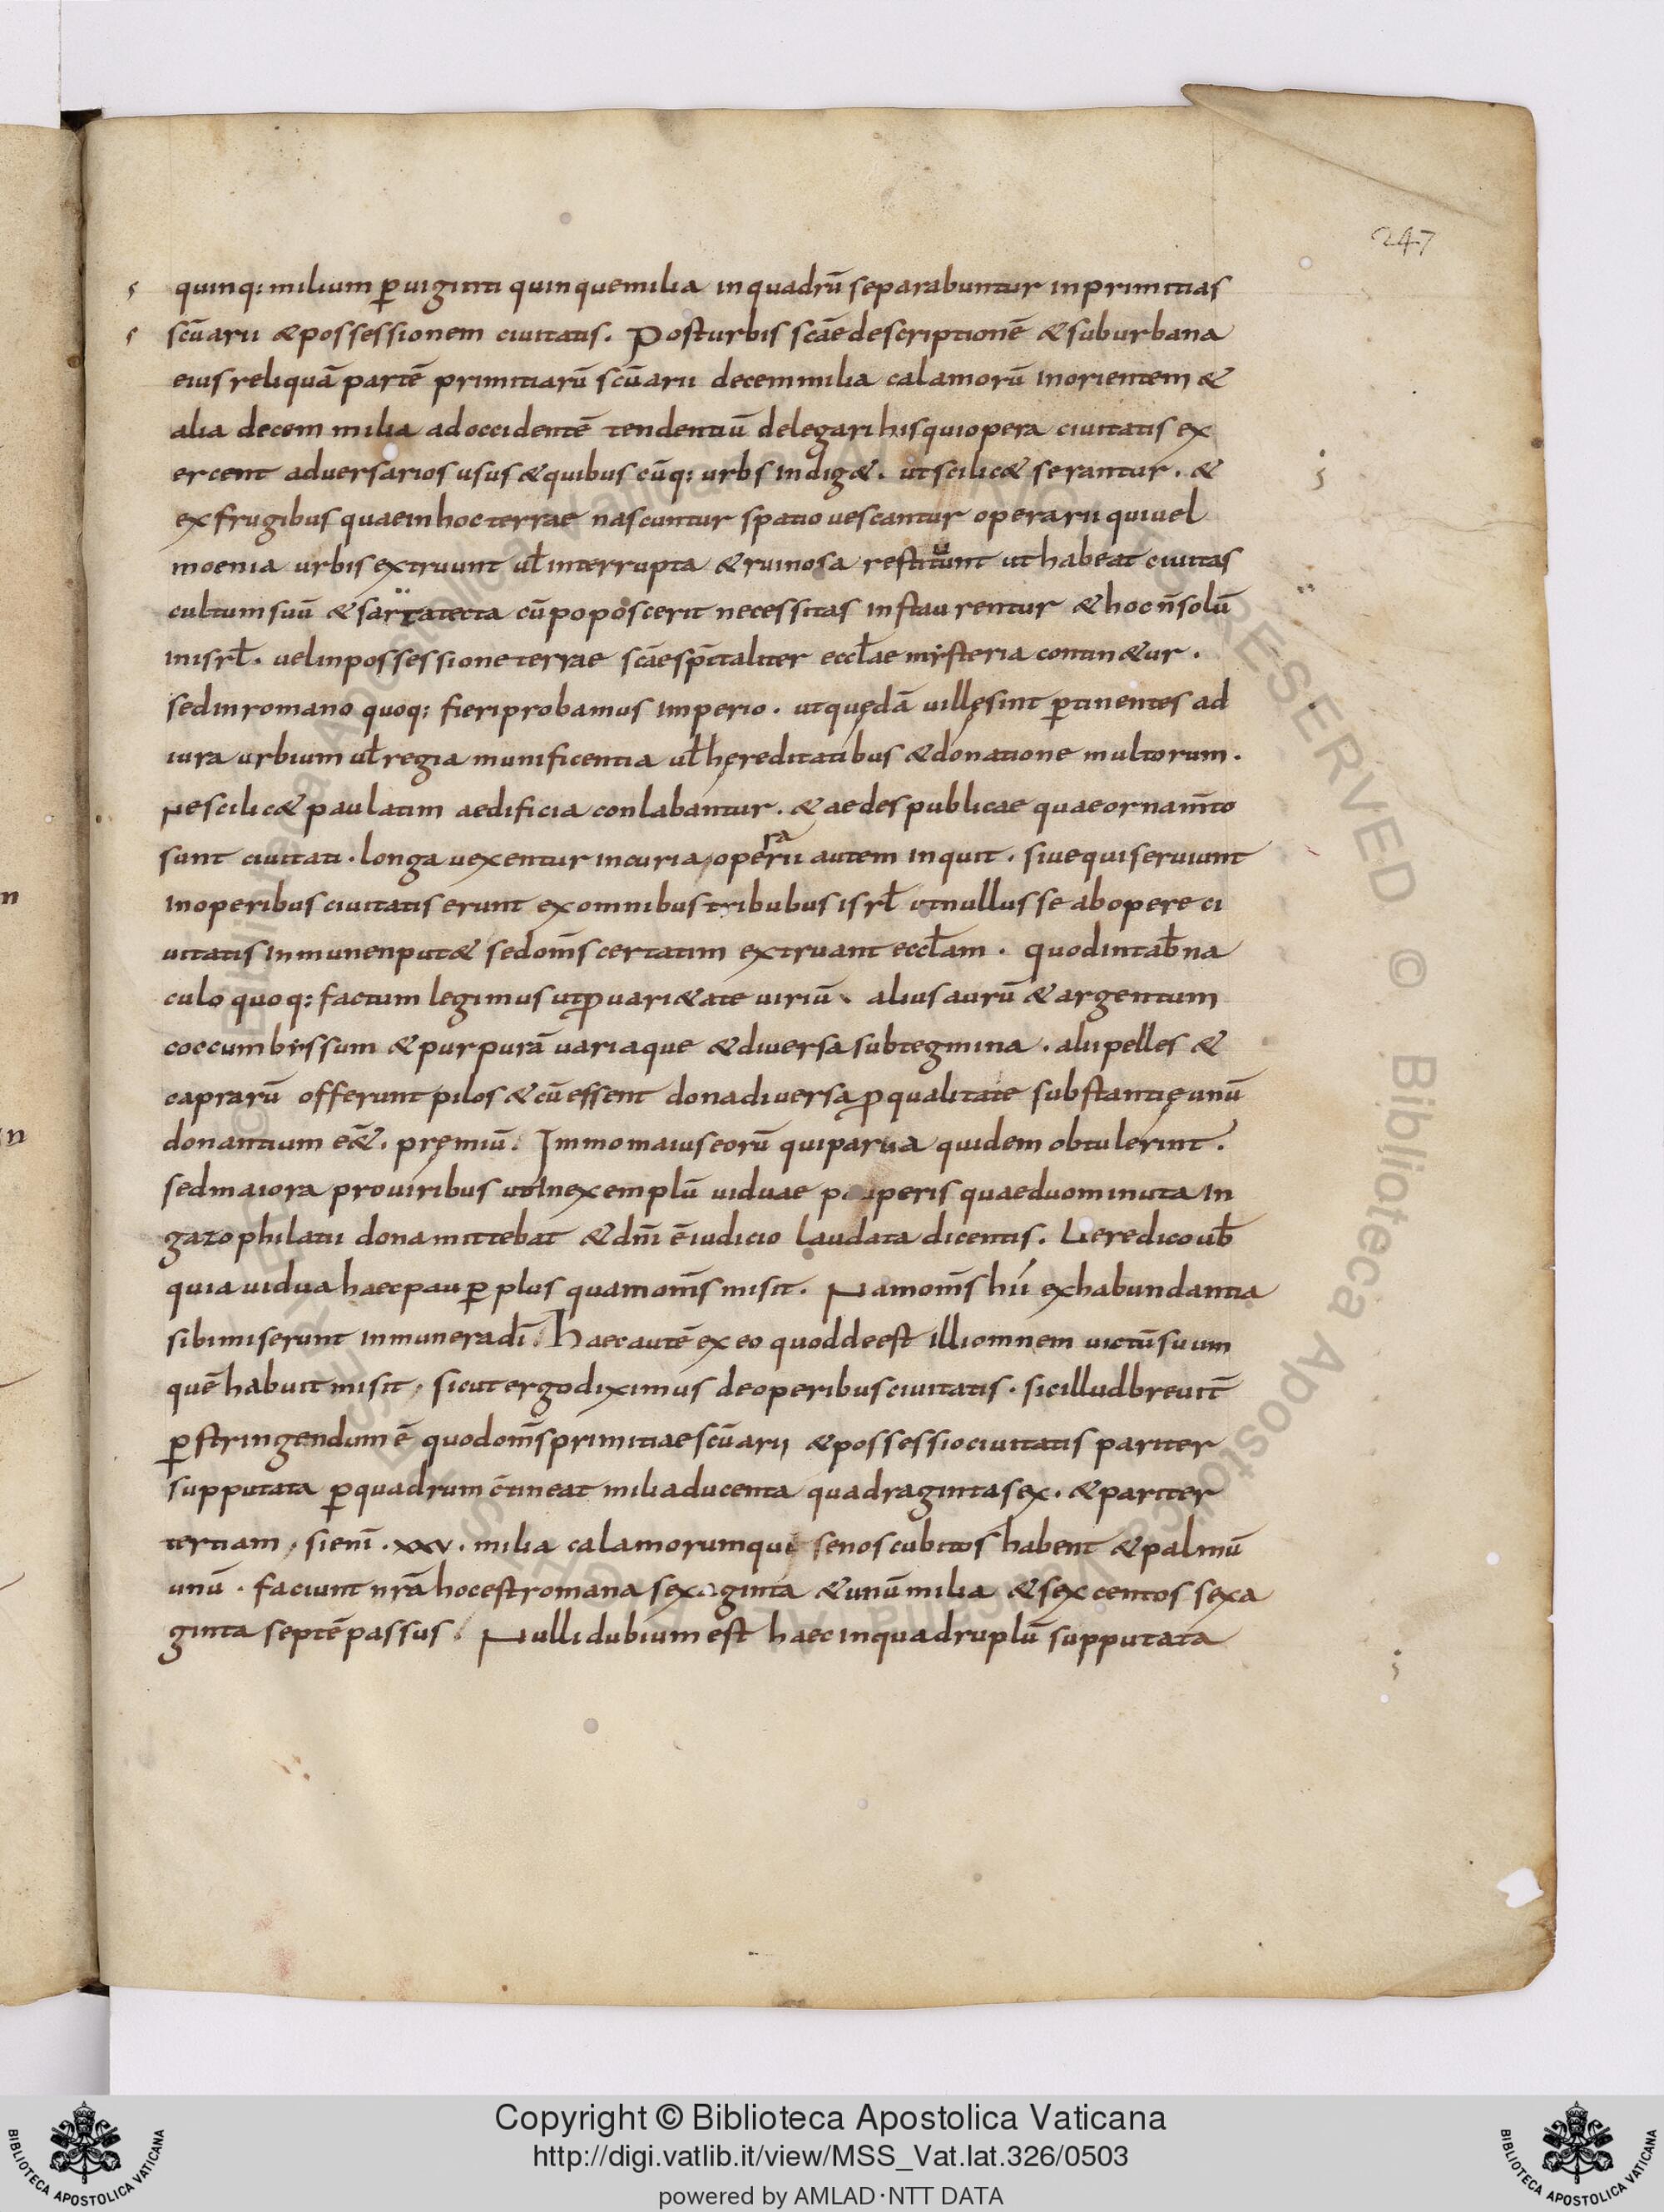 247
quinq: milium ꝑ uiginti quinque milia in quadrū separabuntur in primitias
scūarii & possessionem ciuitatis. Post urbis scāe descriptionē & suburbana
eius reliquā partē primitiarū scūarii decem milia calamorū in orientem &
alia decem milia ad occidentē tendentiū delegari his qui opera ciuitatis ex
ercent ad uersarios usus & quibus cūq: urbs indig&. ut scilic& serantur. &
ex frugibus quae in hoc terrae nascuntur spatio uescantur operarii qui uel
moenia urbis extruunt uł interrupta & ruinosa restituunt ut habeat ciuitas
cultum suū & sarta tecta cū poposcerit necessitas instaurentur & hoc n̄ solū
in isrł. uel in possessione terrae scāe sp̄italiter eccłae mẏsteria contin&ur.
sed in romano quoq: fieri probamus imperio. ut quędā uillę sint ꝑtinentes ad
iura urbium uł regia munificentia uł hęreditatibus & donatione multorum.
Ne scilic& paulatim aedificia conlabantur. & aedes publicae quae ornam̄to
sunt ciuitati. longa uexentur incuria, operarii autem inquit. siue qui seruiunt
in operibus ciuitatis erunt ex omnibus tribubus isrł ut nullus se ab opere ci
uitatis inmunen put& sed om̄s certatim extruant eccłam. quod in tab̄na
culo quoq: factum legimus ut ꝓ uari&ate uiriū. alius aurū & argentum
coccum bẏssum & purpurā uariaque & diuersa subtegmina. alii pelles &
caprarū offerunt pilos & cū essent dona diuersa ꝓ qualitate substantię unū
donantium eē&. pręmiū. Immo maius eorū qui parua quidem obtulerint.
sed maiora pro uiribus ut in exemplū uiduae pauperis quae duo minuta in
gazophilatii dona mittebat & dn̄i ē iudicio laudata dicentis. Uere dico ub̄
quia uidua haec pauꝑ plus quam om̄s misit. Nam om̄s hii ex habundantia
sibi miserunt in munera dī. Haec autē ex eo quod deest illi omnem uictū suum
quē habuit misit, sicut ergo diximus de operibus ciuitatis. sic illud breuit̄
ꝑstringendum ē quod om̄s primitiae scūarii & possessio ciuitatis pariter
supputata ꝑ quadrum c̄tineat milia ducenta quadraginta sex. & pariter
tertiam, si enī .xxv. milia calamorum qui senos cubitos habent & palmū
unū. faciunt nr̄a hoc est romana sexaginta & unū milia & sexcentos sexa
ginta septē passus. Nulli dubium est haec in quadruplū supputata
Copyright © Biblioteca Apostolica Vaticana
http://digi.vatlib.it/view/MSS_Vat.lat.326/0503
powered by AMLAD·NTT DATA
BIBLIOTECA APOSTOLICA VATICANA
BIBLIOTECA APOSTOLICA VATICANA